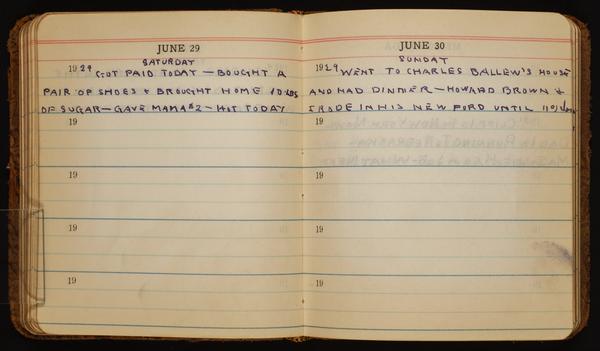 JUNE 29
SATURDAY
1929 GOT PAID TODAY — BOUGHT A
PAIR OF SHOES & BROUGHT HOME 10 LBS
OF SUGAR — GAVE MAMA $2 — HOT TODAY
19
19
19
19
JUNE 30
SUNDAY
1929 WENT TO CHARLES BALLEW'S HOUSE
AND HAD DINNER — HOWARD BROWN &
I RODE IN HIS NEW FORD UNTIL
19
19
19
19